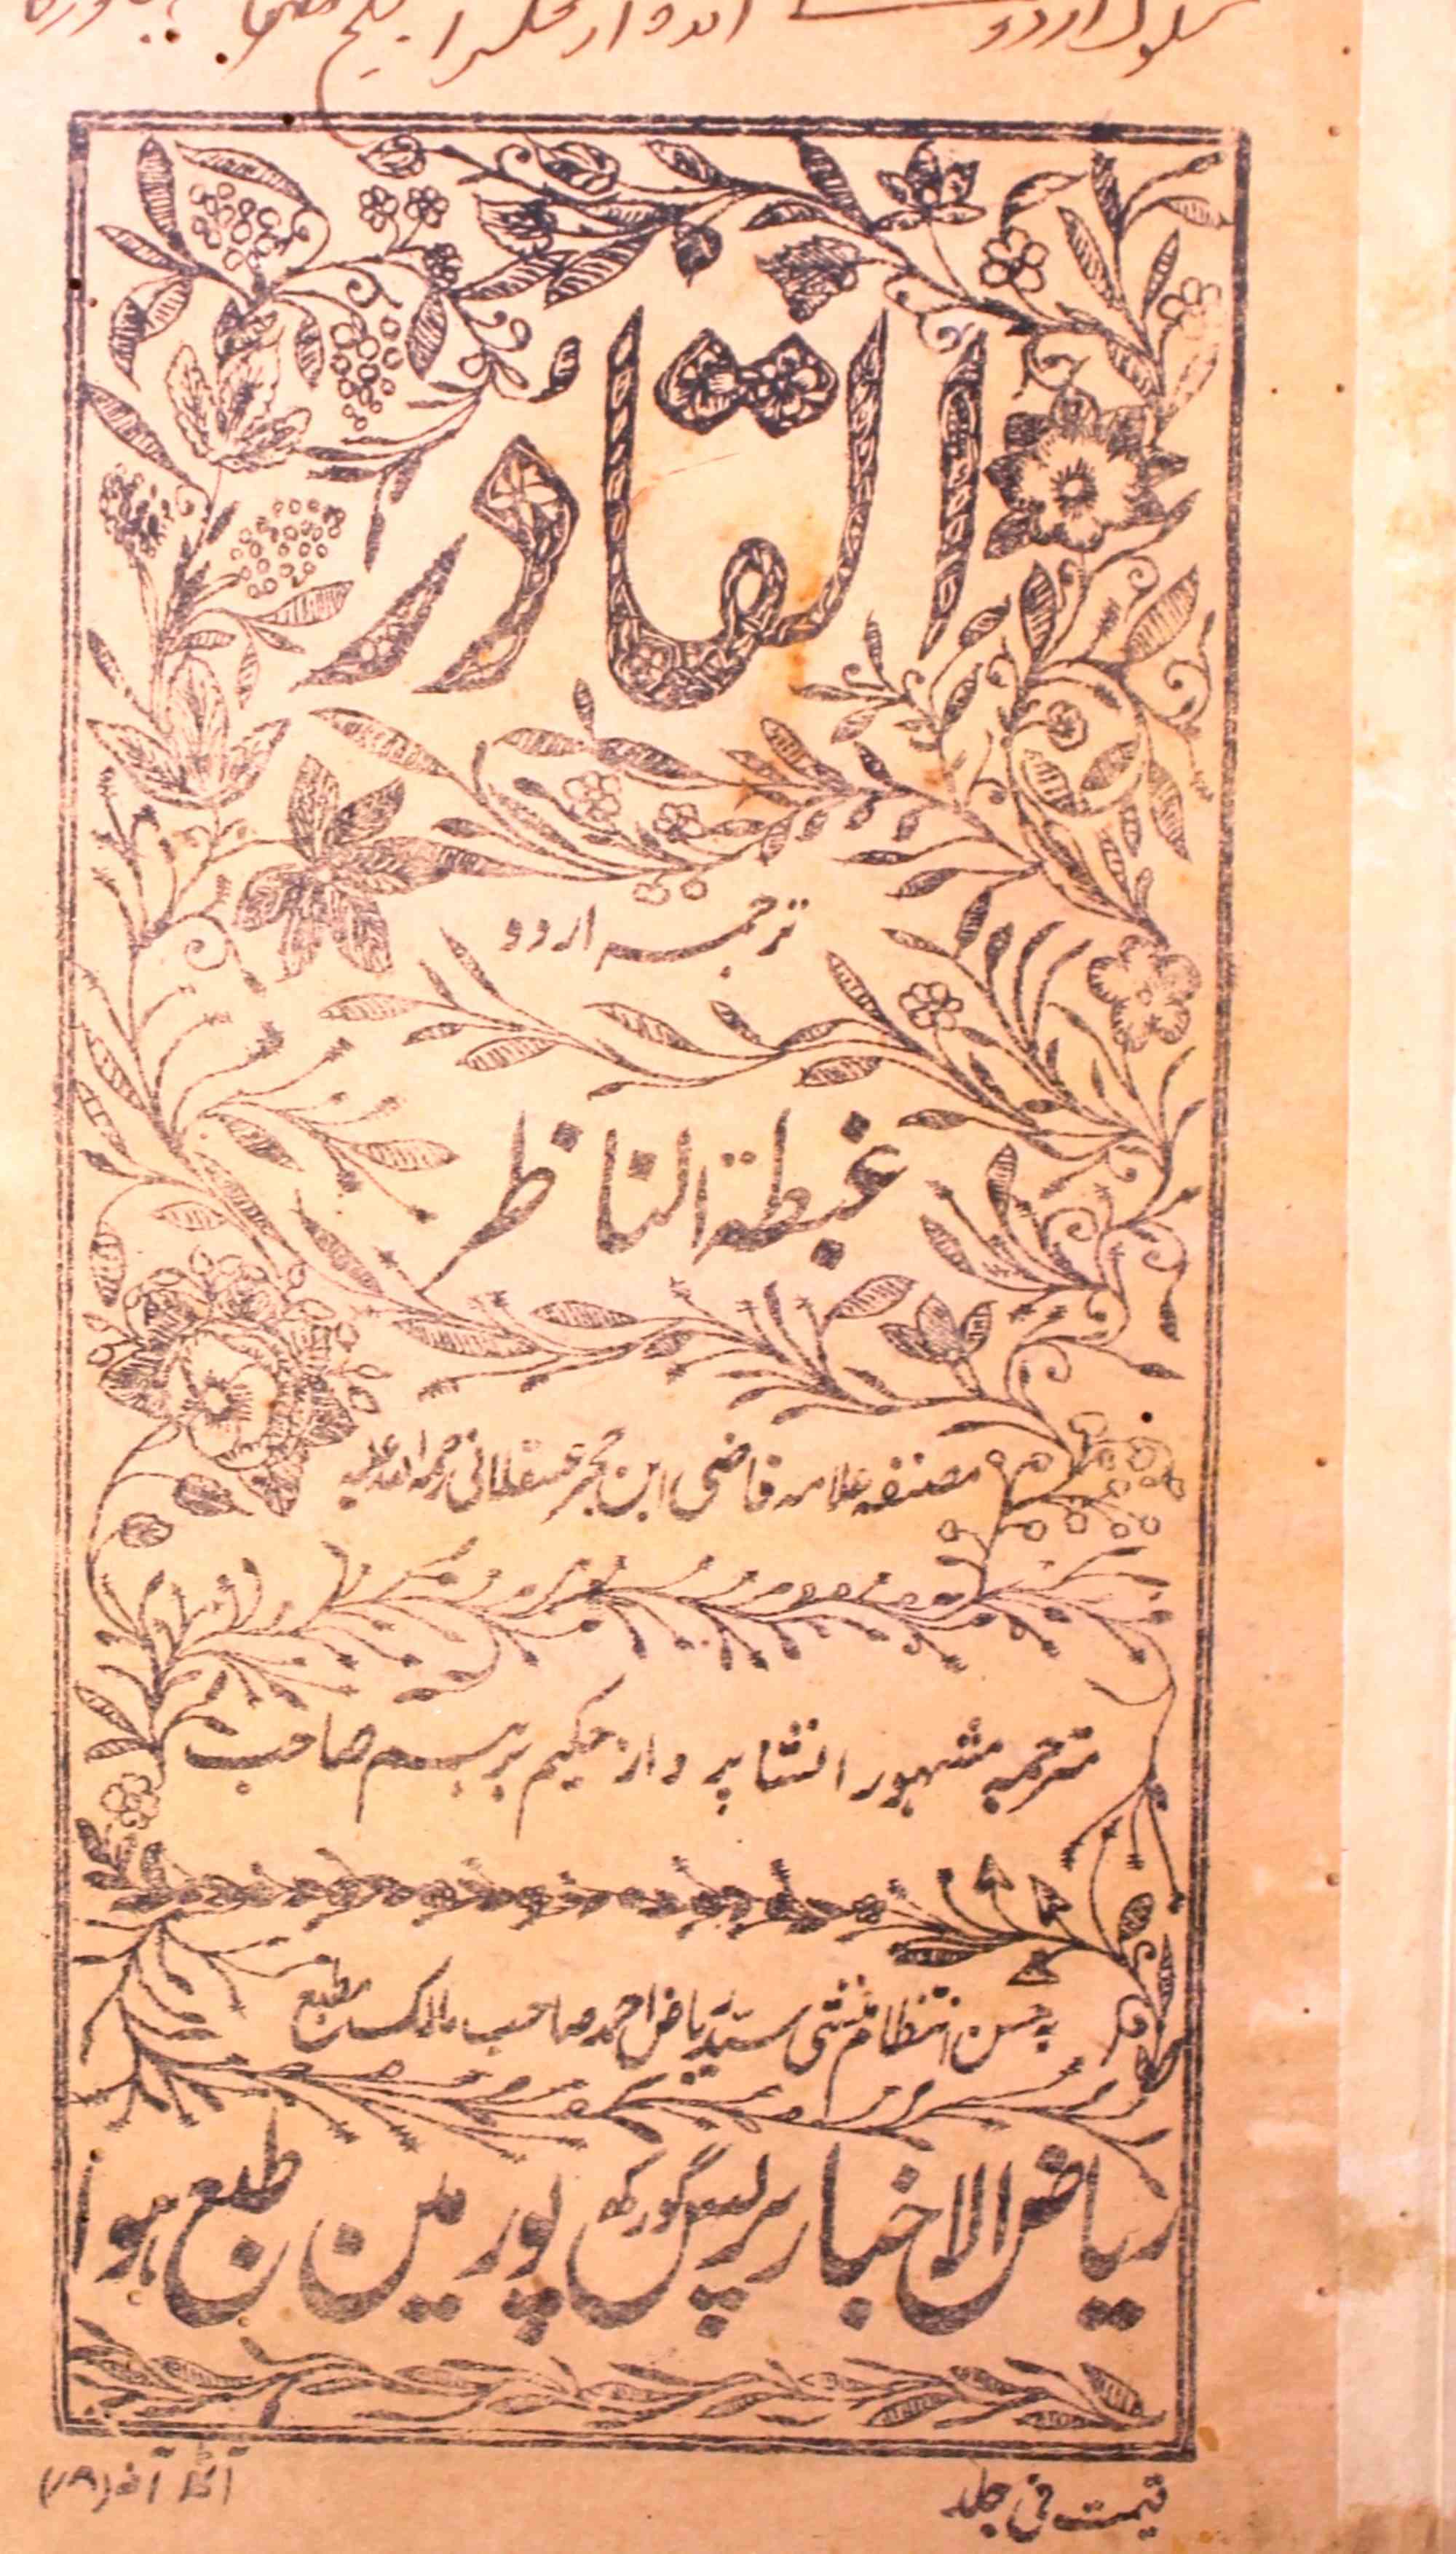 القادر
ترجمہ اردو
غبطة الناظر
مصنفہ علامہ قاضی ابن حجر عسقلانی رحمۃ اللہ علیہ
مترجمہ مشہور انشا پرداز حکیم برہم صاحب
بہ حسن انتظام منشی سید ریاض احمد صاحب مالک مطبع
ریاض الاخبار پریس گورکھپور مین طبع ہوا
قیمت فی جلد
آٹھ آنہ (۸؍)